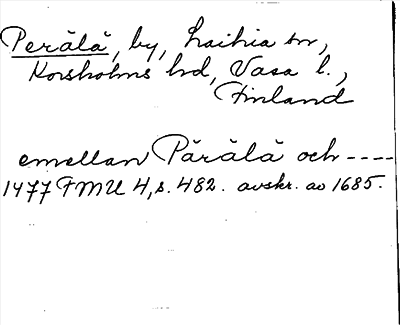 Perälä, by, Laihia sn,
Korsholms hd, Vasa l.,
Finland
emellan Pärälä och ----
1477 FMU 4, s. 482. avskr. av 1685.